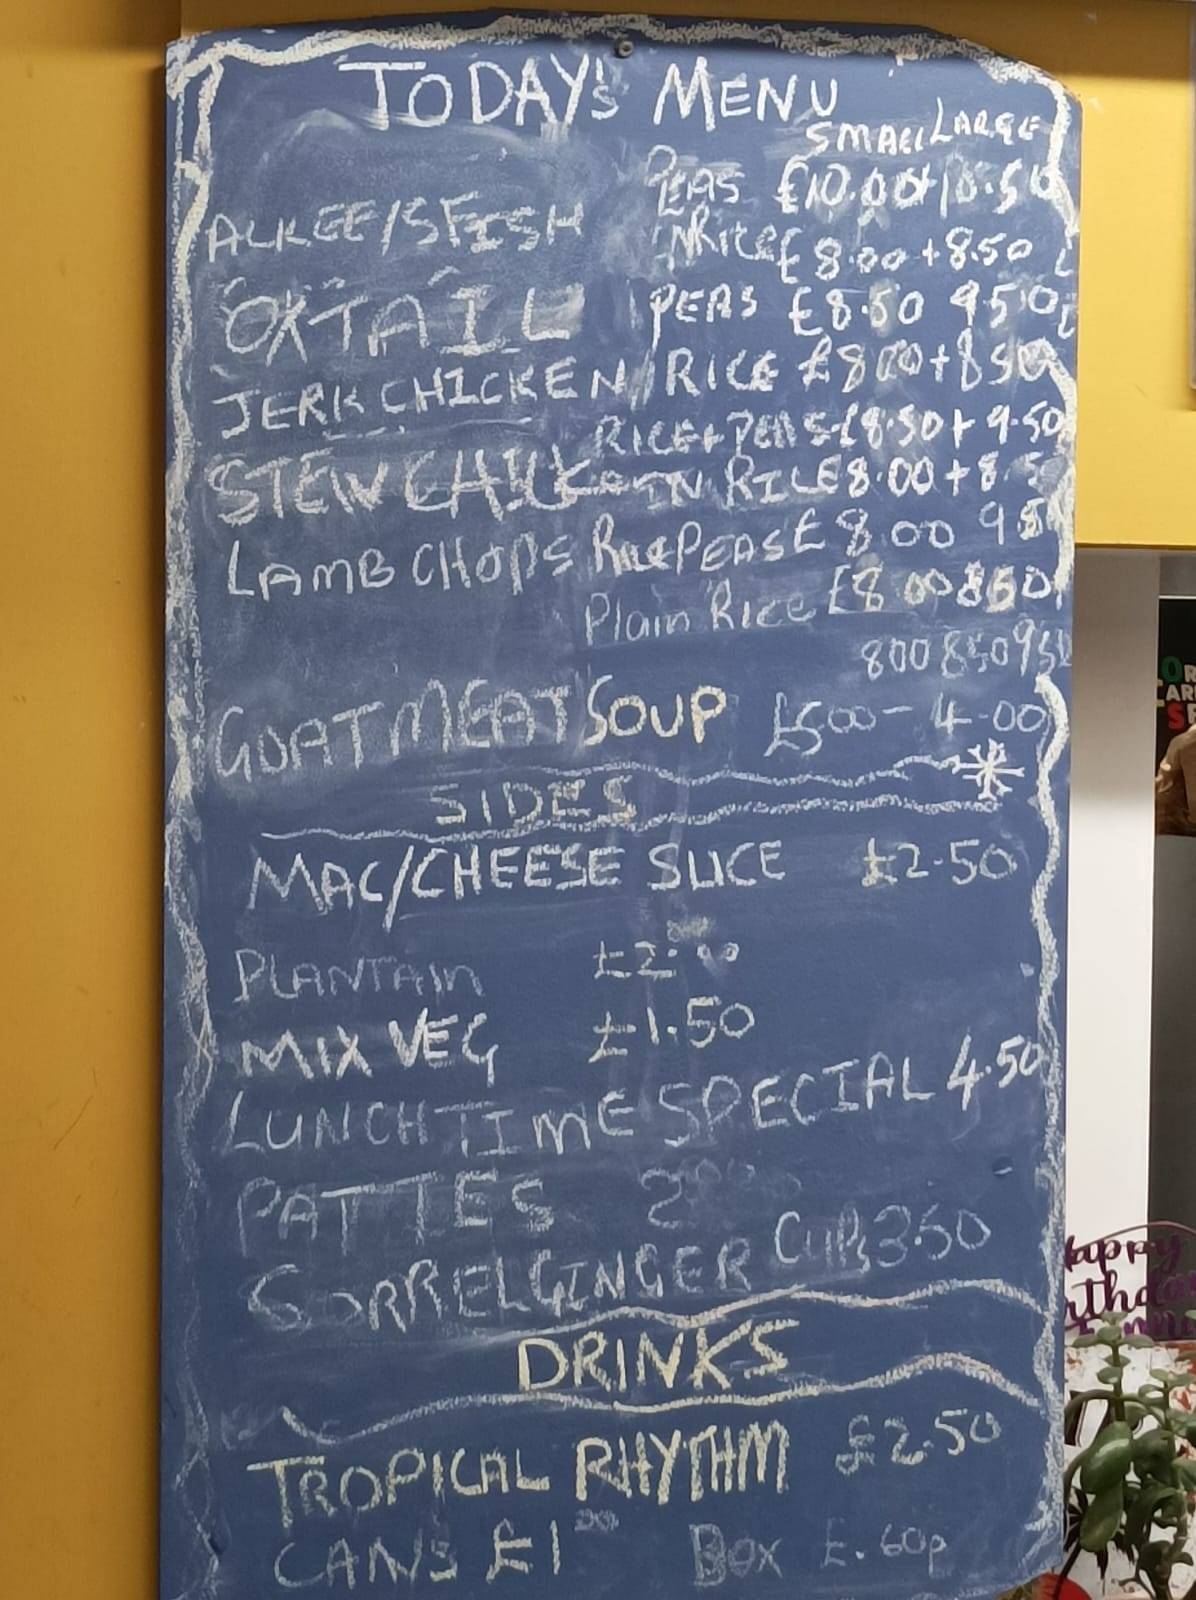 TODAY'S MENU
SMALL LARGE
PEAS £10.00+10.50
ALKEE/SFISH NRICE £8.00+8.50
OXTAIL PEAS £8.50 950
JERK CHICKEN/RICE £800+850
RICE+PEAS £8.50+9.50
STEW CHICKEN RICE 8.00+8.50
LAMB CHOPS Rice PEAS £8.00 950
Plain Rice £8.00 850
800 850 950
GOAT MEAT SOUP £500-4.00
SIDES
MAC/CHEESE SLICE £2.50
PLANTAIN £2.00
MIX VEG £1.50
LUNCH TIME SPECIAL 4.50
PATTIES 2
SORREL GINGER Cups 3.50
DRINKS
TROPICAL RHYTHM £2.50
CANS £1 20 BOX £.60p
Happy